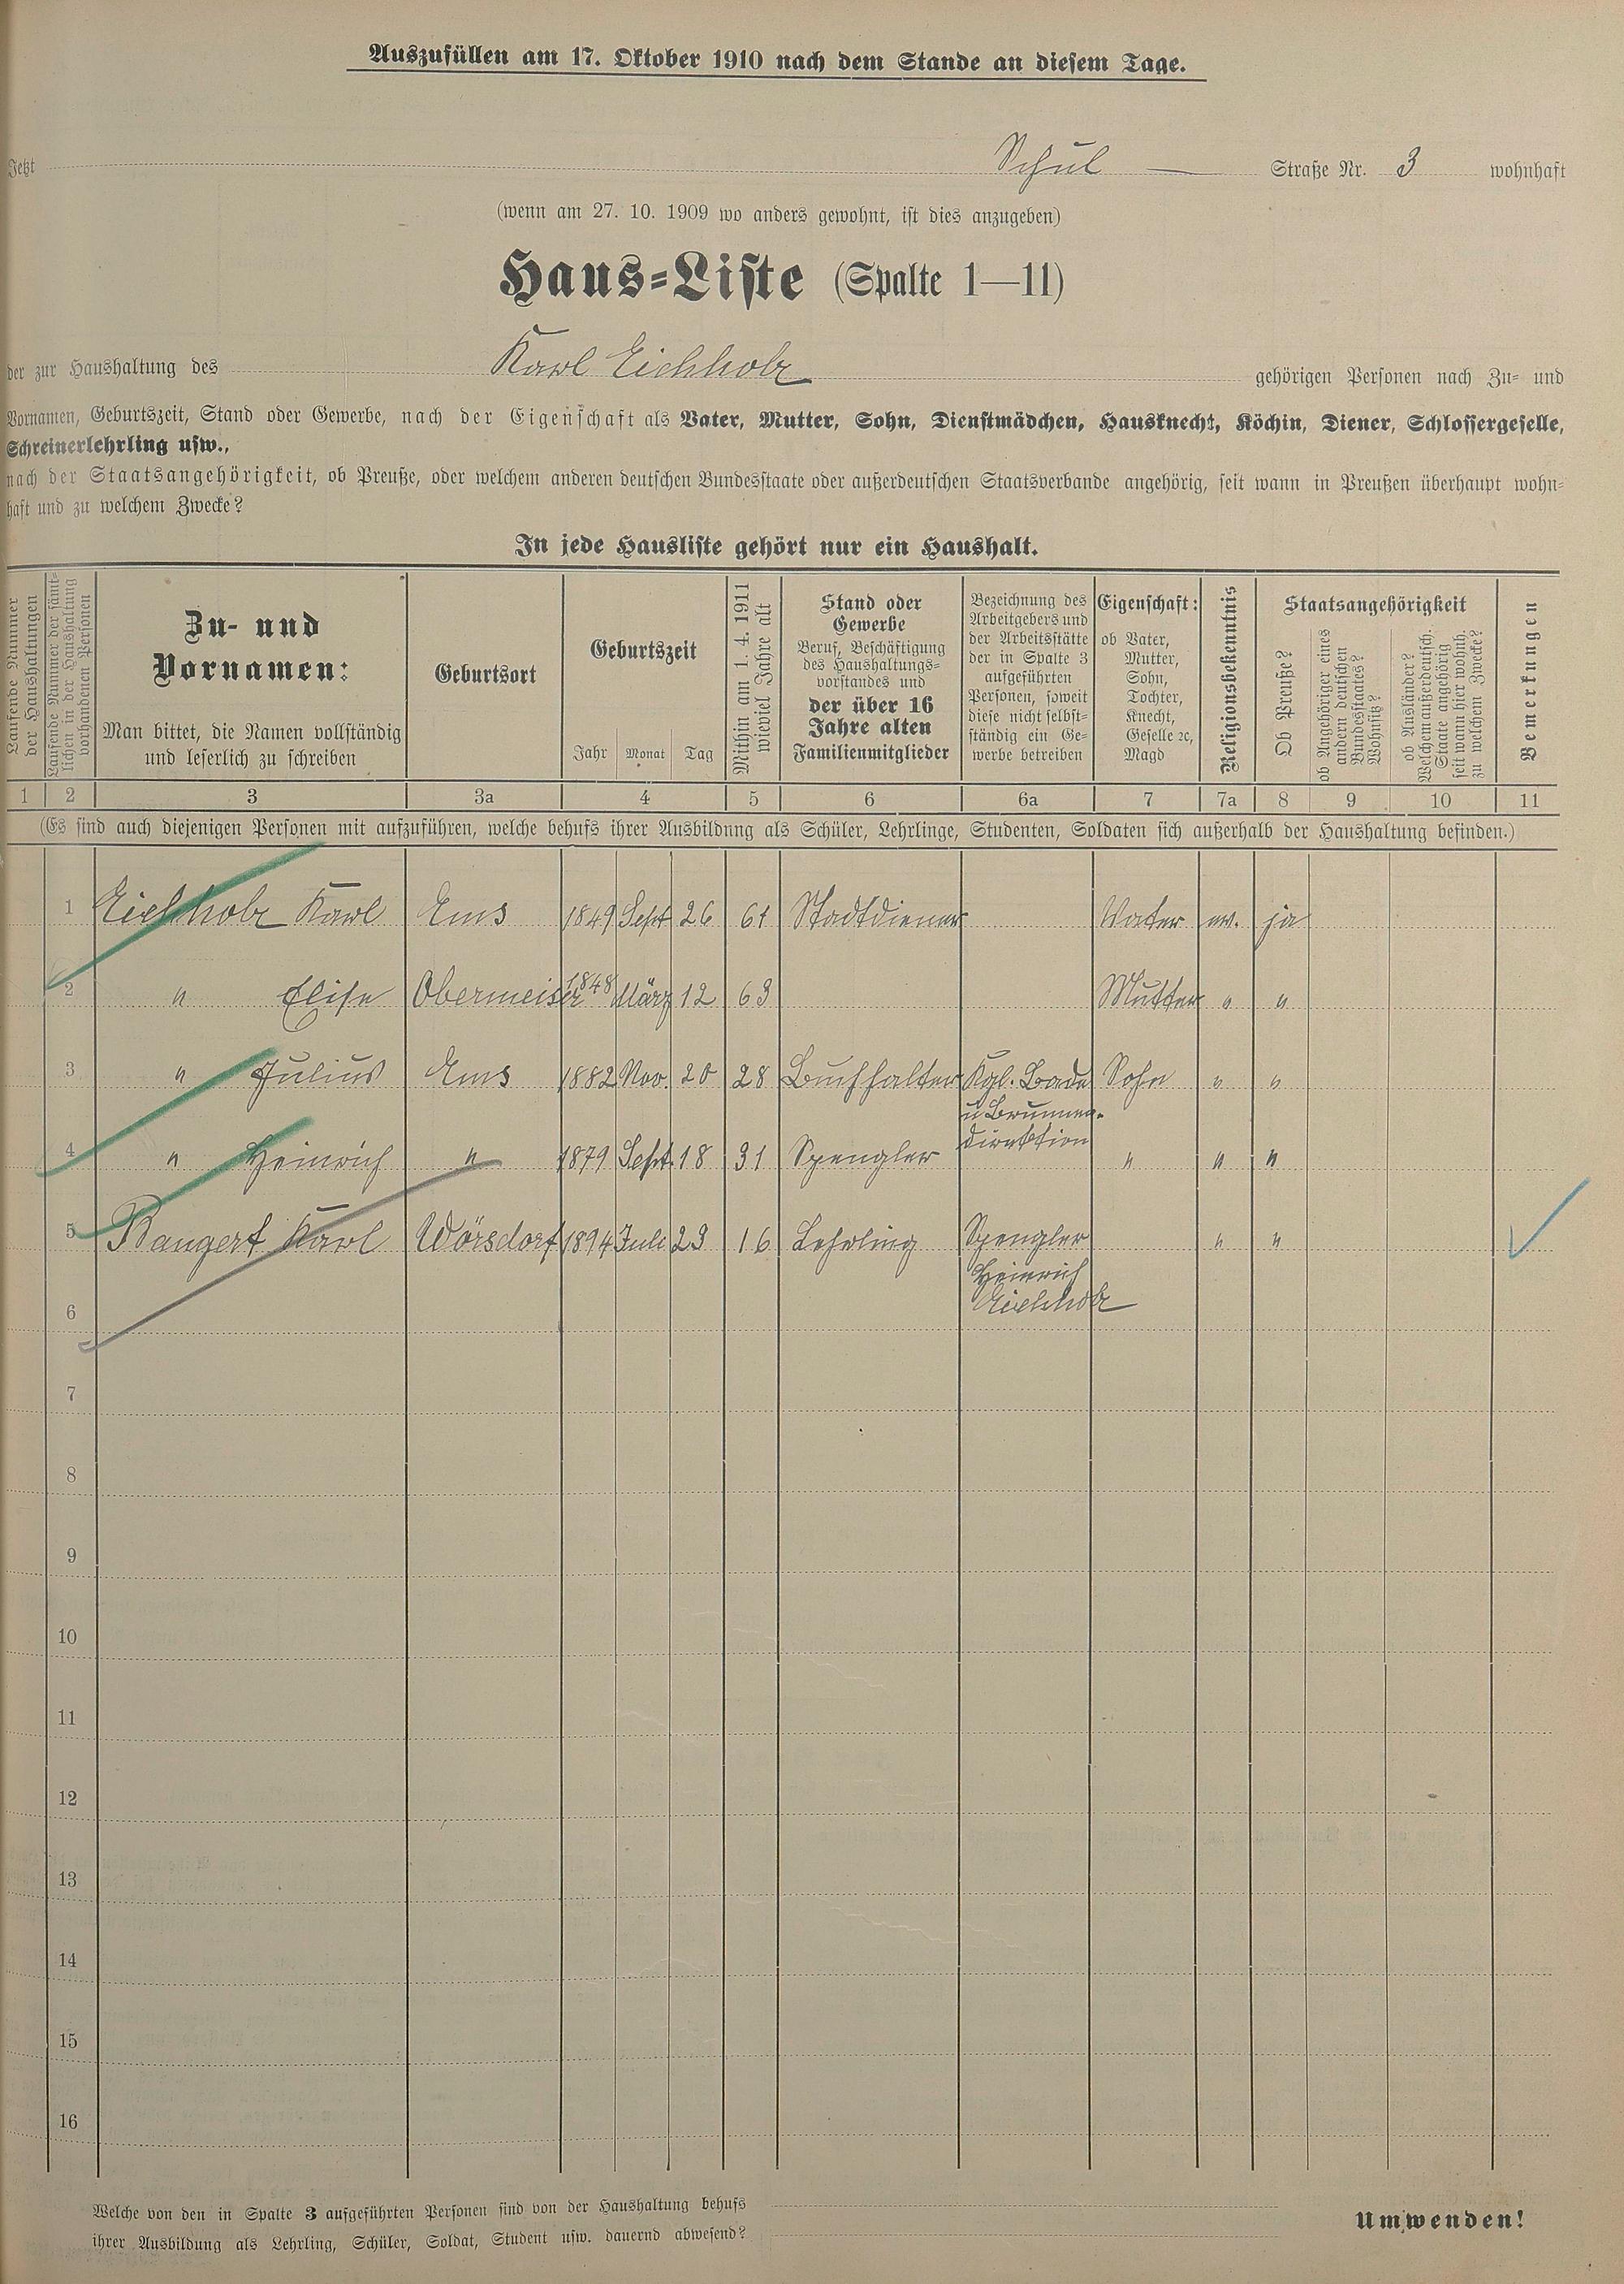 Auszufüllen am 17. Oktober 1910 nach dem Stande an diesem Tage.
Jetzt Schul — Straße Nr. 3 wohnhaft
(wenn am 27. 10. 1909 wo anders gewohnt, ist dies anzugeben)
Haus-Liste (Spalte 1—11)
der zur Haushaltung des Karl Eichholz gehörigen Personen nach Zu- und
Vornamen, Geburtszeit, Stand oder Gewerbe, nach der Eigenschaft als Vater, Mutter, Sohn, Dienstmädchen, Hausknecht, Köchin, Diener, Schlossergeselle,
Schreinerlehrling usw.,
nach der Staatsangehörigkeit, ob Preuße, oder welchem anderen deutschen Bundesstaate oder außerdeutschen Staatsverbande angehörig, seit wann in Preußen überhaupt wohn-
haft und zu welchem Zwecke?
In jede Hausliste gehört nur ein Haushalt.
Laufende Nummer
der Haushaltungen
Laufende Nummer der sämt-
lichen in der Haushaltung
vorhandenen Personen
Zu- und
Vornamen:
Man bittet, die Namen vollständig
und leserlich zu schreiben
Geburtsort
Geburtszeit
Jahr Monat Tag
Mithin am 1. 4. 1911
wieviel Jahre alt
Stand oder
Gewerbe
Beruf, Beschäftigung
des Haushaltungs-
vorstandes und
der über 16
Jahre alten
Familienmitglieder
Bezeichnung des
Arbeitgebers und
der Arbeitsstätte
der in Spalte 3
aufgeführten
Personen, soweit
diese nicht selbst-
ständig ein Ge-
werbe betreiben
Eigenschaft:
ob Vater,
Mutter,
Sohn,
Tochter,
Knecht,
Geselle ꝛc,
Magd
Religionsbekenntnis
Staatsangehörigkeit
Ob Preuße?
ob Angehöriger eines
andern deutschen
Bundesstaates?
Wohnsitz?
ob Ausländer?
Welchem außerdeutsch.
Staate angehörig
seit wann hier wohnh.
zu welchem Zwecke?
Bemerkungen
1 2 3 3a 4 5 6 6a 7 7a 8 9 10 11
(Es sind auch diejenigen Personen mit aufzuführen, welche behufs ihrer Ausbildung als Schüler, Lehrlinge, Studenten, Soldaten sich außerhalb der Haushaltung befinden.)
1 Eichholz Karl Ems 1849 Sept 26 61 Stadtdiener Vater ev. ja
2 " Elise Obermeiser 1848 März 12 63 Mutter " "
3 " Julius Ems 1882 Nov. 20 28 Buchhalter Kgl. Bade Sohn " "
u Brunnen-
direktion
4 " Heinrich " 1879 Sept. 18 31 Spengler " " "
5 Bangert Karl Wörsdorf 1894 Juli 23 16 Lehrling Spengler " "
Heinrich
Eichholz
6
7
8
9
10
11
12
13
14
15
16
Welche von den in Spalte 3 aufgeführten Personen sind von der Haushaltung behufs
ihrer Ausbildung als Lehrling, Schüler, Soldat, Student usw. dauernd abwesend?
Umwenden!